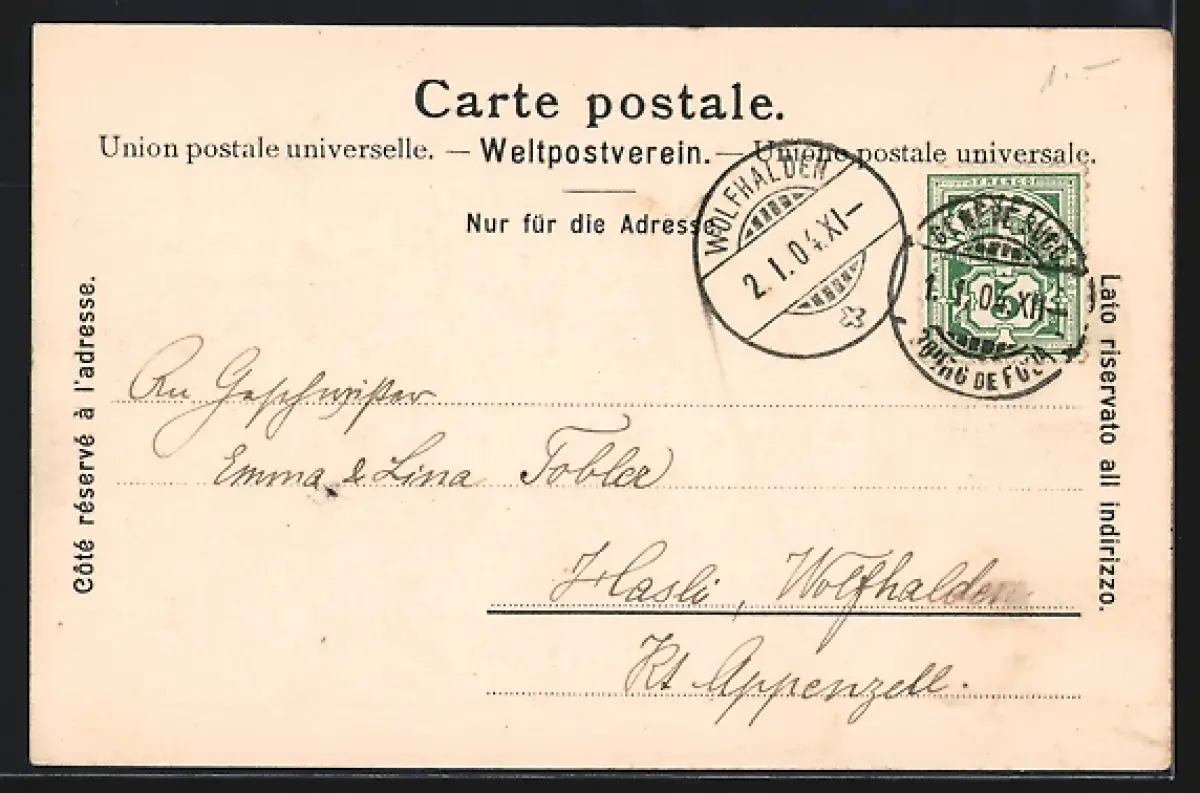 1.-
Carte postale.
Union postale universelle. — Weltpostverein. — Unione postale universale.
Nur für die Adresse.
WOLFHALDEN
2.I.04.XI—
FRANCO
GENÈVE
1.I.04.XII—
5
Côté réservé à l'adresse.
Lato riservato all indirizzo.
An Geschwister
Emma & Lina Tobler
Hasli, Wolfhalden
Kt Appenzell.